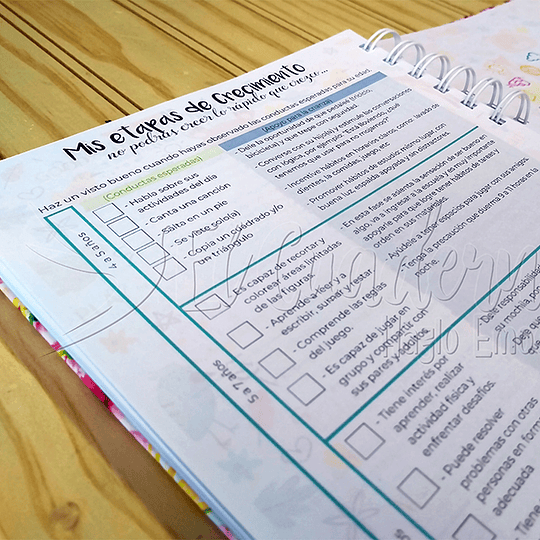 Mis etapas de Crecimiento
no podrás creer lo rápido que crezco...
Haz un visto bueno cuando hayas observado las conductas esperadas para su edad.
(Conductas esperadas)
(Apoyo para la crianza)
4 a 5 años
- Habla sobre sus
actividades del día
- Canta una canción
- Salta en un pie
- Se viste solo(a)
- Copia un cuadrado y/o
un triángulo
- Dele la oportunidad de que pedalee (triciclo,
bicicleta) y que trepe con seguridad.
- Converse con su hijo(a) y estimule las conversaciones
con lógica, por ejemplo, "Está lloviendo, ¿Qué
tenemos que usar para no mojarnos?
- Incentive hábitos en horarios claros, como, lavado de
dientes, la comida, juego, etc.
- Promover hábitos de estudio mismo lugar con
buena luz, útiles apartados y ordenados.
5 a 7 años
- Es capaz de recortar y
colorear áreas limitadas
de las figuras
- Aprende a leer y a
escribir, sumar y restar.
- Comprende las reglas
del juego.
- Es capaz de jugar en
grupo y compartir con
sus pares y adultos.
- En esta fase se asienta la sensación de se bueno en
algo, va a ingresar a la escuela y es muy importante
apoyarle para que logre tener hábitos de tareas y
orden en sus materiales.
- Ayúdele a tener espacios para jugar con los amigos.
- Tenga la precaución que duerma 9 a 11 horas en la
noche.
- Tiene interés por
aprender, realizar
actividad física y
enfrentar desafíos.
- Puede resolver
problemas con otras
personas en forma
adecuada
- Dele responsabilidad
su mochila,
Dele
que